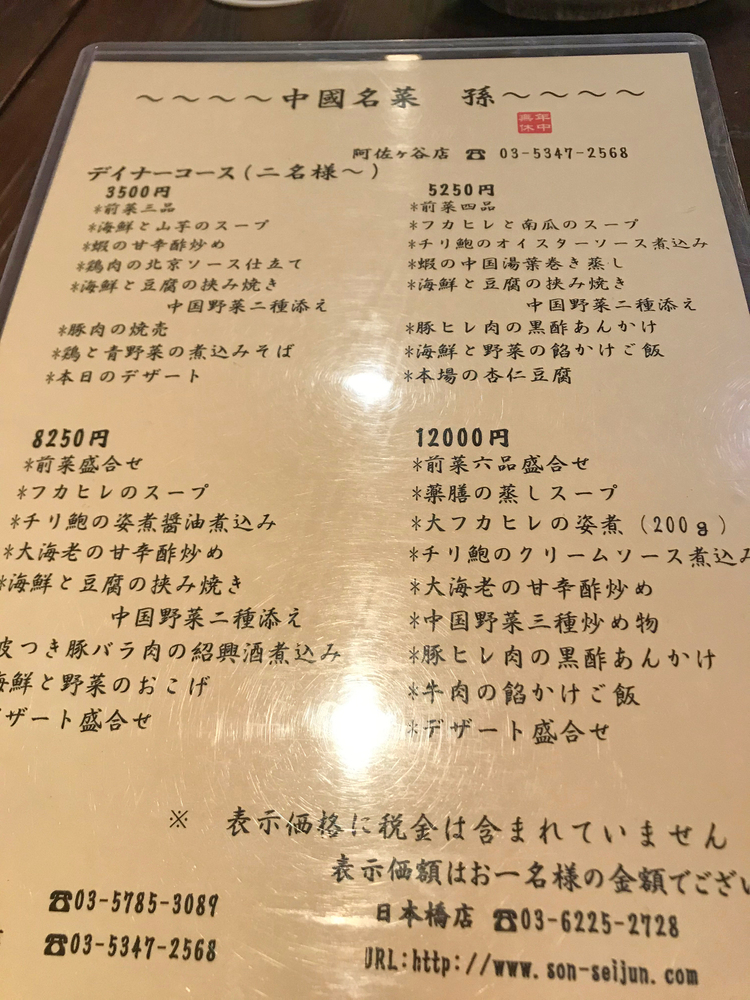 ～～～～中國名菜　孫～～～～
年中無休
阿佐ヶ谷店 ☎ 03-5347-2568
デイナーコース(二名様～)
3500円
*前菜三品
*海鮮と山芋のスープ
*蝦の甘辛酢炒め
*鶏肉の北京ソース仕立て
*海鮮と豆腐の挟み焼き
中国野菜二種添え
*豚肉の焼売
*鶏と青野菜の煮込みそば
*本日のデザート
5250円
*前菜四品
*フカヒレと南瓜のスープ
*チリ鮑のオイスターソース煮込み
*蝦の中国湯葉巻き蒸し
*海鮮と豆腐の挟み焼き
中国野菜二種添え
*豚ヒレ肉の黒酢あんかけ
*海鮮と野菜の餡かけご飯
*本場の杏仁豆腐
8250円
*前菜盛合せ
*フカヒレのスープ
*チリ鮑の姿煮醤油煮込み
*大海老の甘辛酢炒め
*海鮮と豆腐の挟み焼き
中国野菜二種添え
皮つき豚バラ肉の紹興酒煮込み
海鮮と野菜のおこげ
デザート盛合せ
12000円
*前菜六品盛合せ
*薬膳の蒸しスープ
*大フカヒレの姿煮(200g)
*チリ鮑のクリームソース煮込み
*大海老の甘辛酢炒め
*中国野菜三種炒め物
*豚ヒレ肉の黒酢あんかけ
*牛肉の餡かけご飯
*デザート盛合せ
※　表示価格に税金は含まれていません
表示価額はお一名様の金額でござい
☎03-5785-3089
日本橋店 ☎03-6225-2728
☎03-5347-2568
URL:http://www.son-seijun.com